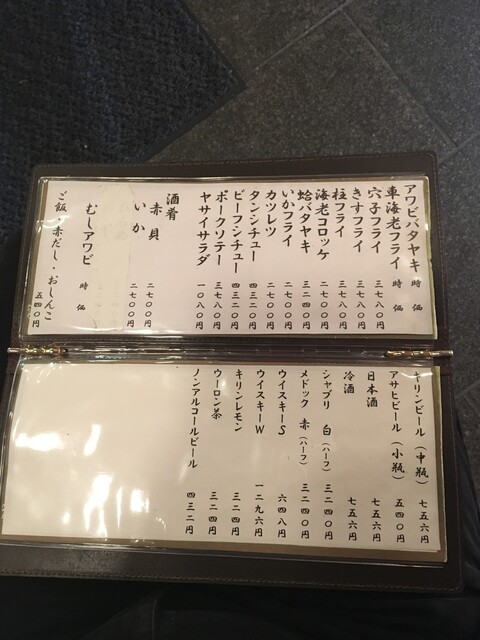 アワビバタヤキ 時価
車海老フライ 時価
穴子フライ 三七八〇円
きすフライ 三七八〇円
柱フライ 三七八〇円
海老コロッケ 二七〇〇円
蛤バタヤキ 三二四〇円
いかフライ 二七〇〇円
カツレツ 二七〇〇円
タンシチュー 四三二〇円
ビーフシチュー 四三二〇円
ポークソテー 三七八〇円
ヤサイサラダ 一〇八〇円
酒肴
赤貝 二七〇〇円
いか 二七〇〇円
むしアワビ 時価
ご飯・赤だし・おしんこ 五四〇円
キリンビール(中瓶) 七五六円
アサヒビール(小瓶) 五四〇円
日本酒 七五六円
冷酒 七五六円
シャブリ 白(ハーフ) 三二四〇円
メドック 赤(ハーフ) 三二四〇円
ウイスキーS 六四八円
ウイスキーW 一二九六円
キリンレモン 三二四円
ウーロン茶 三二四円
ノンアルコールビール 四三二円